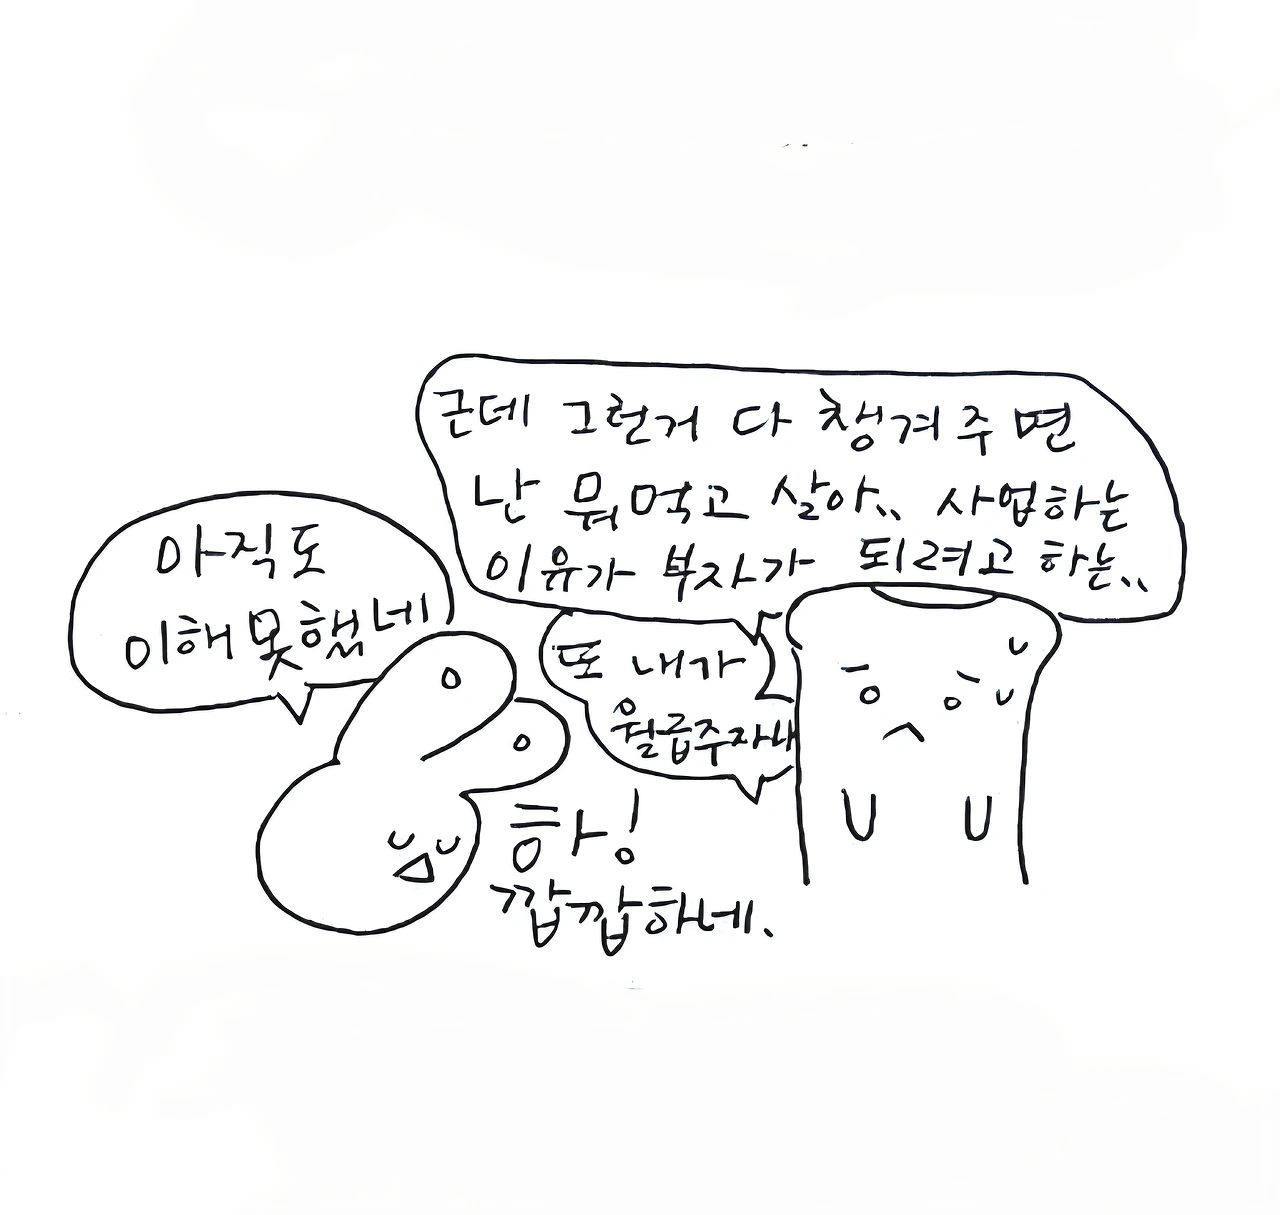 근데 그런거 다 챙겨주면
난 뭐먹고 살아.. 사업하는
이유가 부자가 되려고 하는..
또 내가
월급주자내
아직도
이해못했네
하!
깝깝하네.